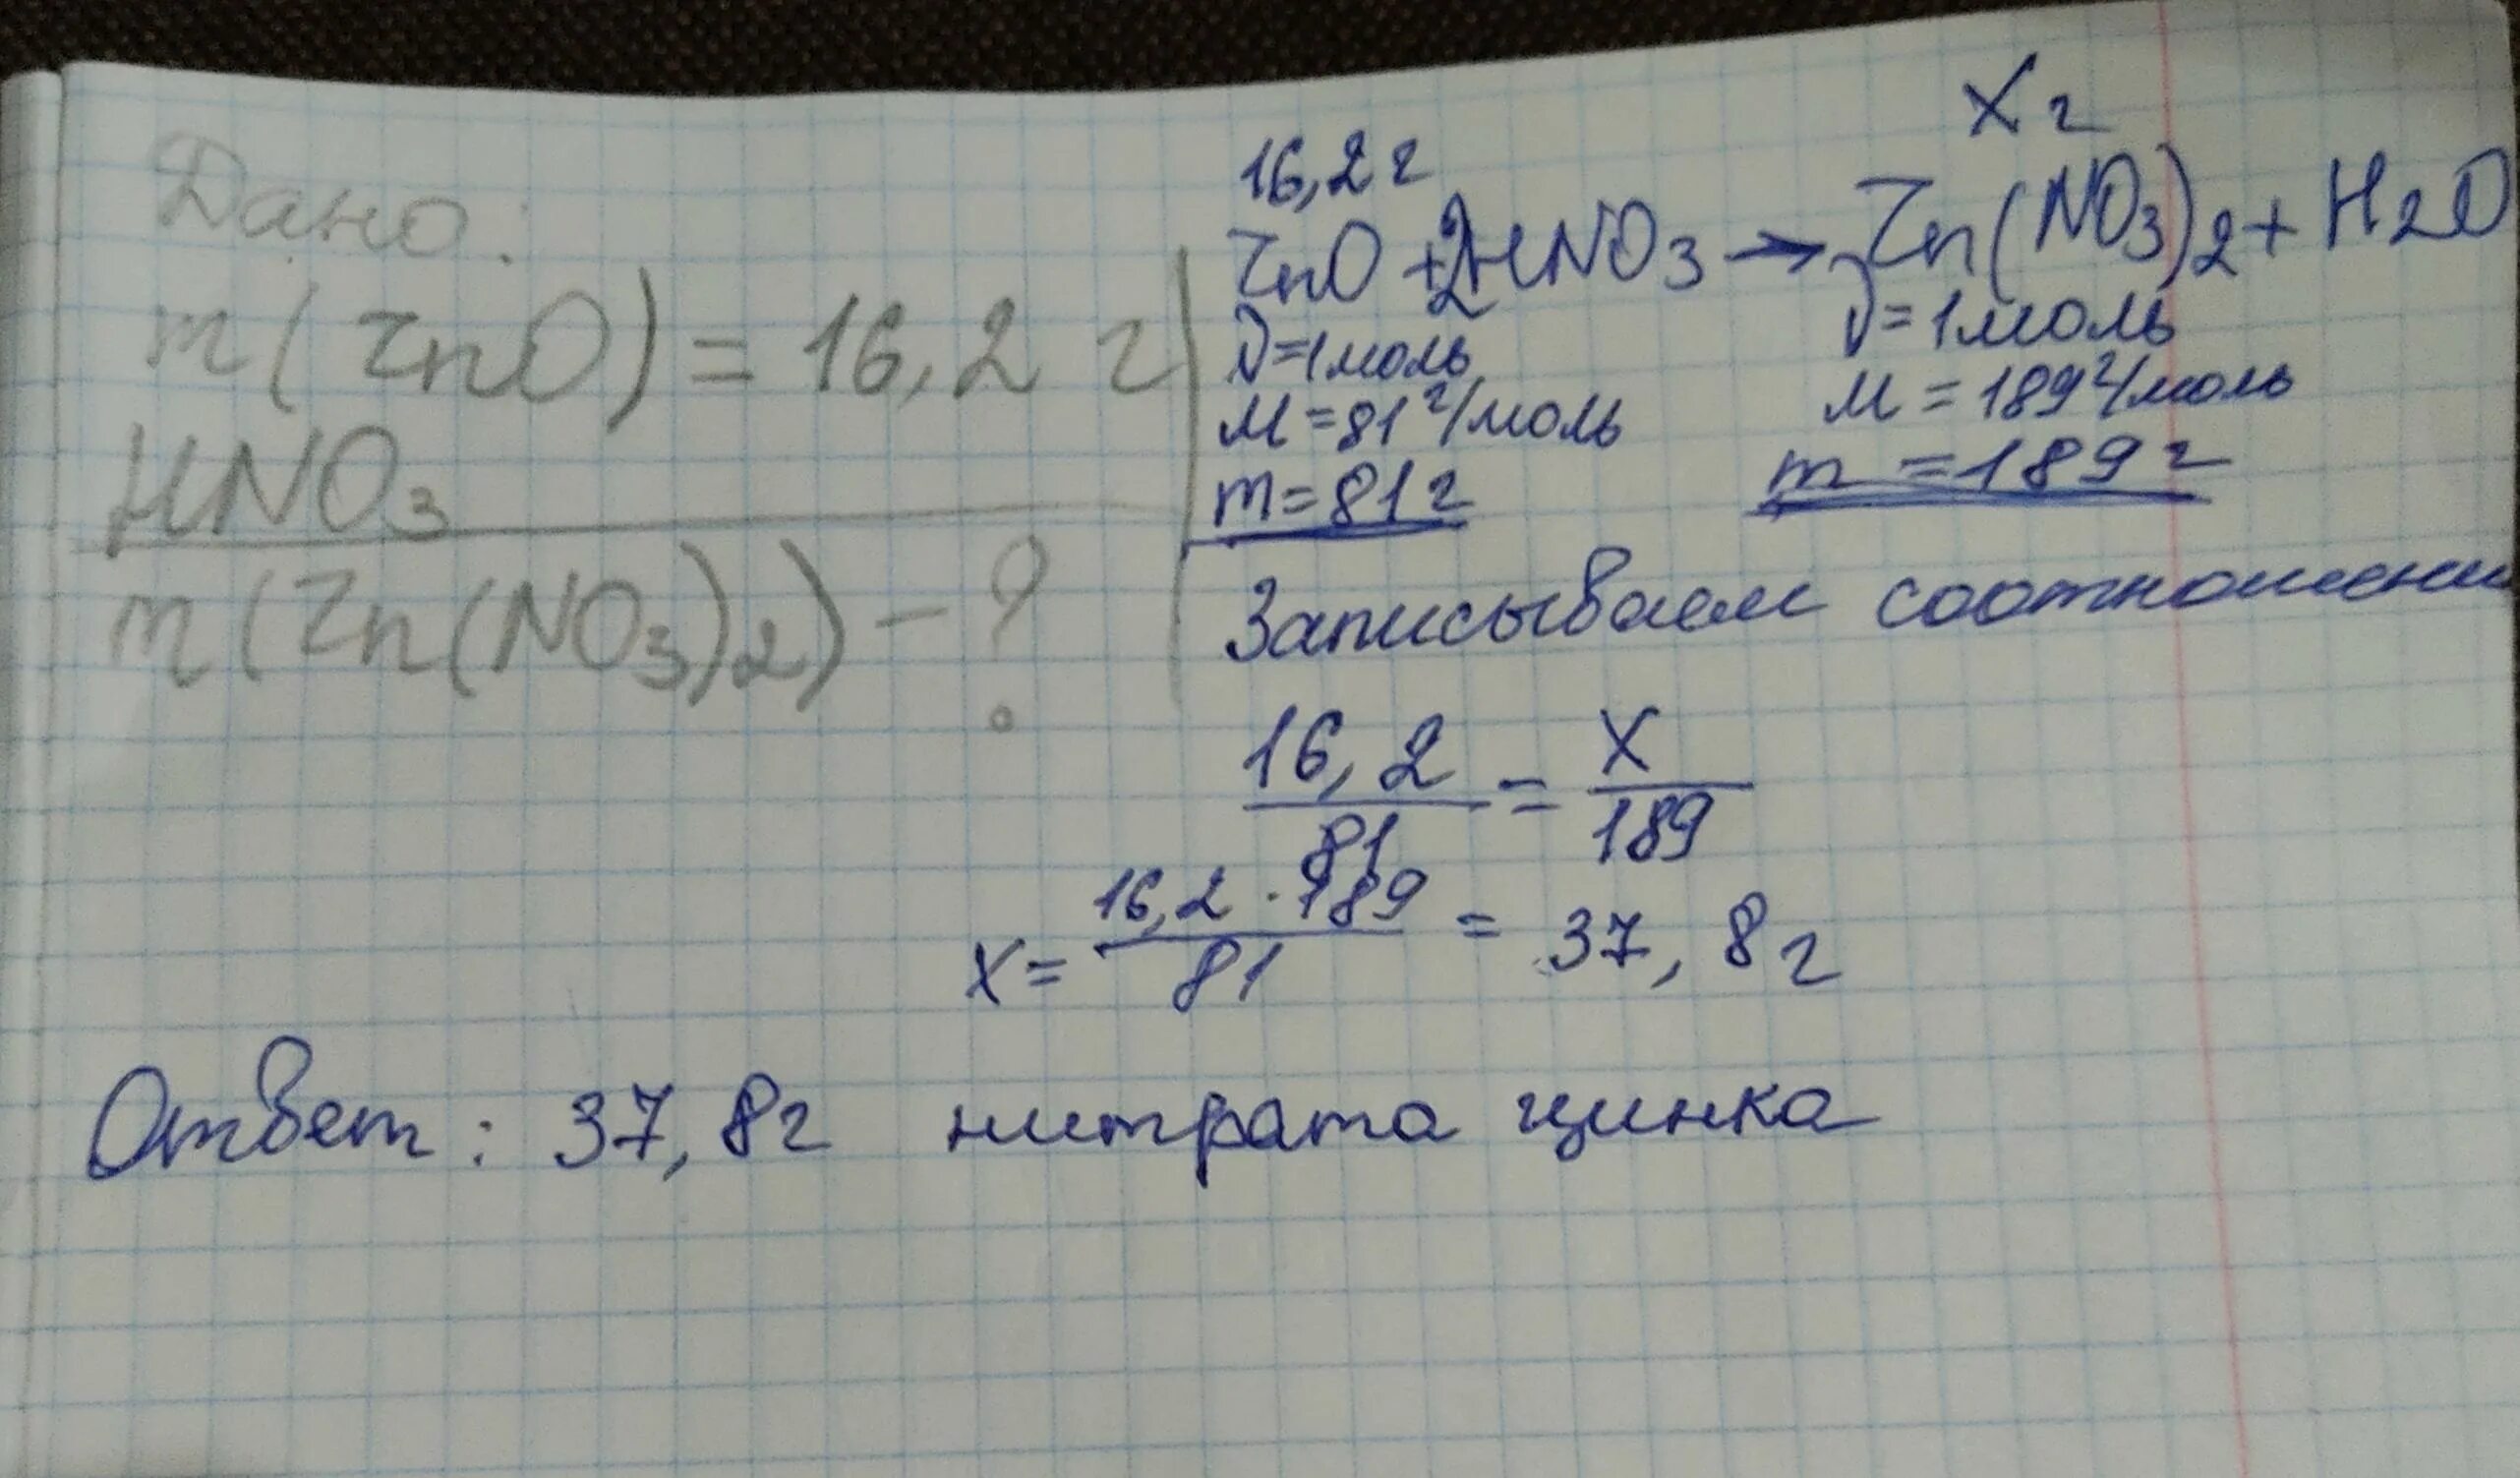 Дано:
m(ZnO) = 16,2 г
HNO₃
m(Zn(NO₃)₂) - ?
16,2 г
X г
ZnO + 2HNO₃ → Zn(NO₃)₂ + H₂O
ν=1моль
ν=1моль
M=81 г/моль
M=189 г/моль
m=81 г
m=189 г
Записываем соотношени
16,2/81 = X/189
X = 16,2 · 189/81 = 37,8 г
Ответ: 37,8г нитрата цинка